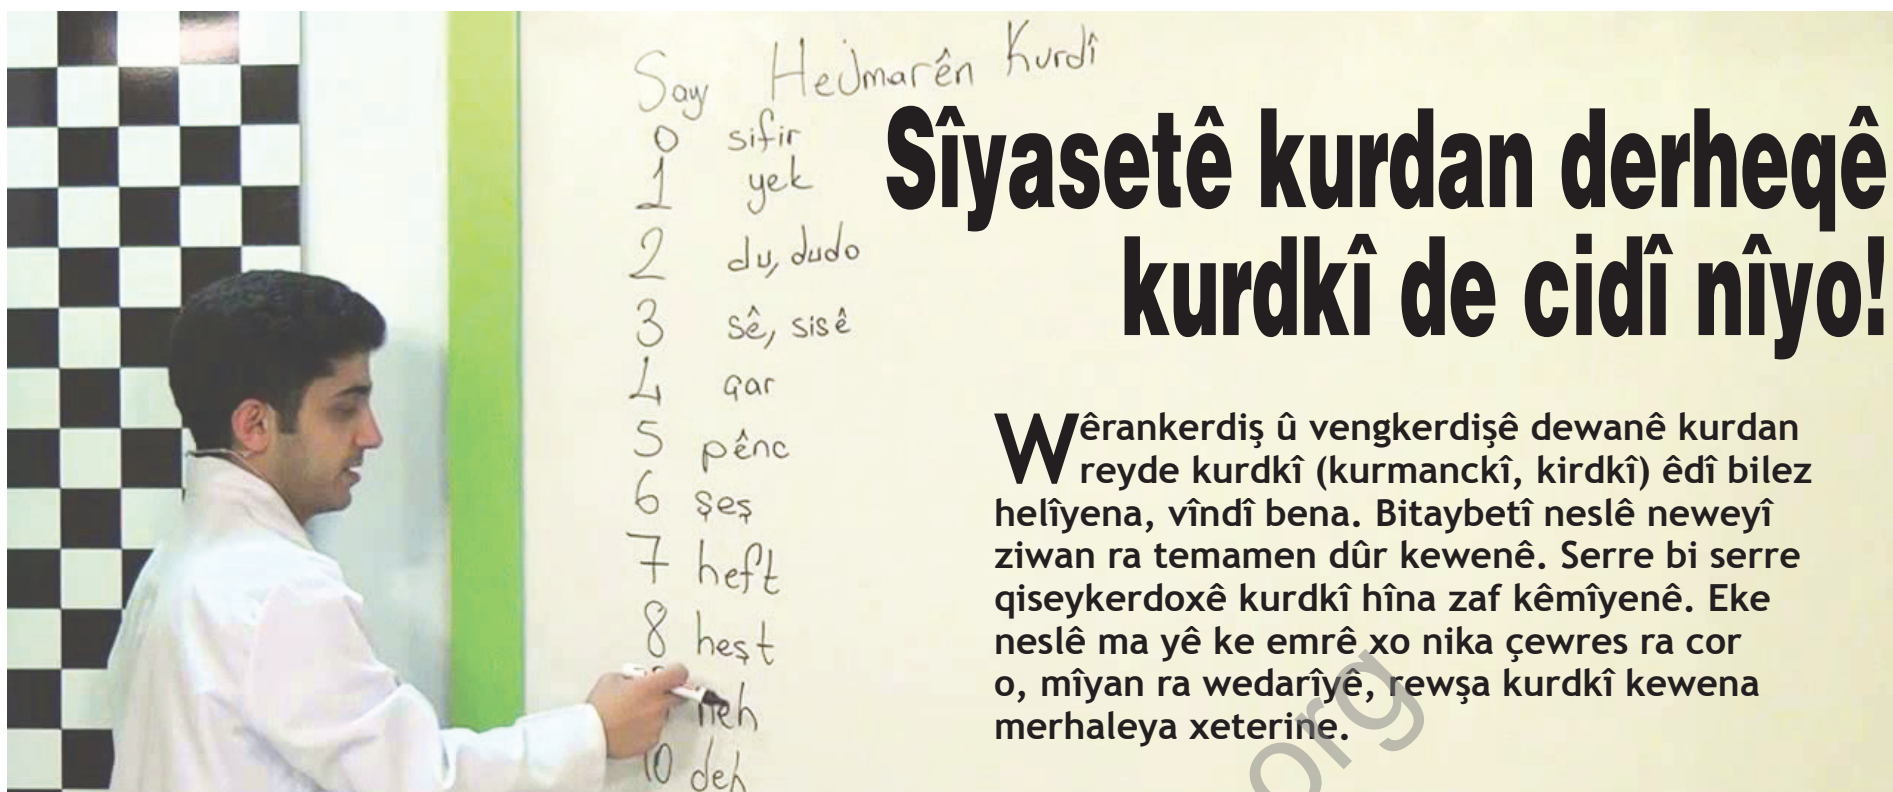 Say Hejmarên Kurdî
0 sifir
1 yek
2 du, dudo
3 sê, sisê
4 çar
5 pênc
6 şeş
7 heft
8 heşt
neh
10 deh
Sîyasetê kurdan derheqê
kurdkî de cidî nîyo!
Wêrankerdiş û vengkerdişê dewanê kurdan
reyde kurdkî (kurmanckî, kirdkî) êdî bilez
helîyena, vîndî bena. Bitaybetî neslê neweyî
ziwan ra temamen dûr kewenê. Serre bi serre
qiseykerdoxê kurdkî hîna zaf kêmîyenê. Eke
neslê ma yê ke emrê xo nika çewres ra cor
o, mîyan ra wedarîyê, rewşa kurdkî kewena
merhaleya xeterine.
org